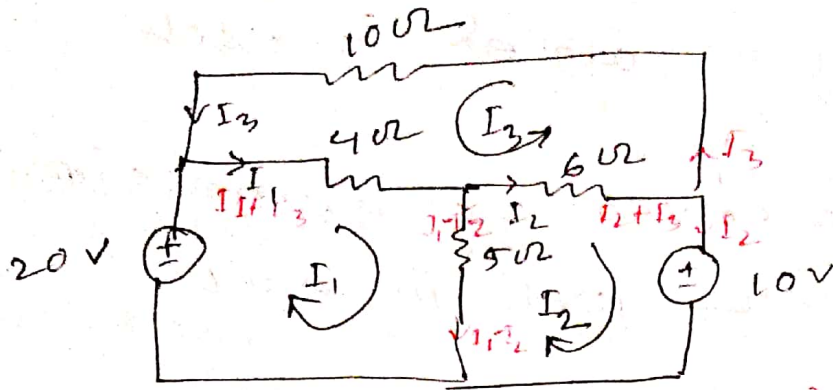 10Ω
I3
4Ω
I3
6Ω
I3
I1+I3
I1-I2
I2
I2+I3
I2
20V
±
I1
5Ω
I2
±
10V
I1-I2